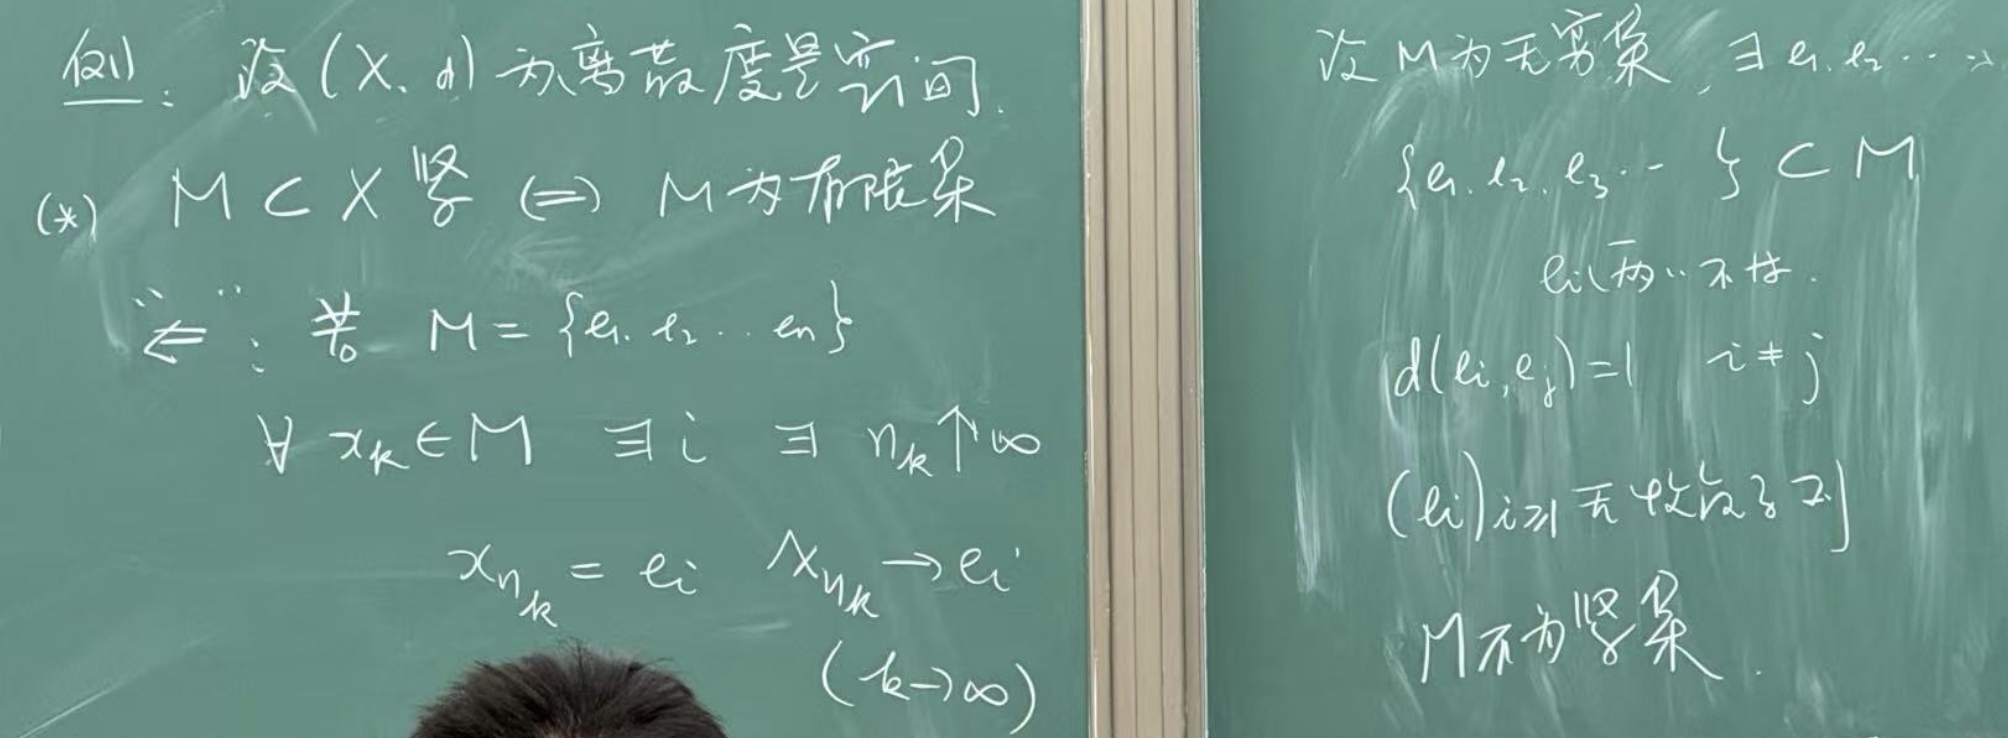 例1: 设 (X, d) 为离散度量空间.
(*) M ⊂ X 紧 (=) M 为有限集
"⇐": 若 M = {e₁. e₂ ... eₙ}
∀ xₖ ∈ M ∃ i ∃ nₖ ↑ ∞
x_{nₖ} = eᵢ x_{nₖ} → eᵢ
(k → ∞)
设 M 为无穷集, ∃ e₁. e₂ ...
{e₁. e₂. e₃ ... } ⊂ M
eᵢ 两两不
d(eᵢ, eⱼ) = 1 i ≠ j
(eᵢ)_{i≥1} 无收敛子列
M 不为紧集.